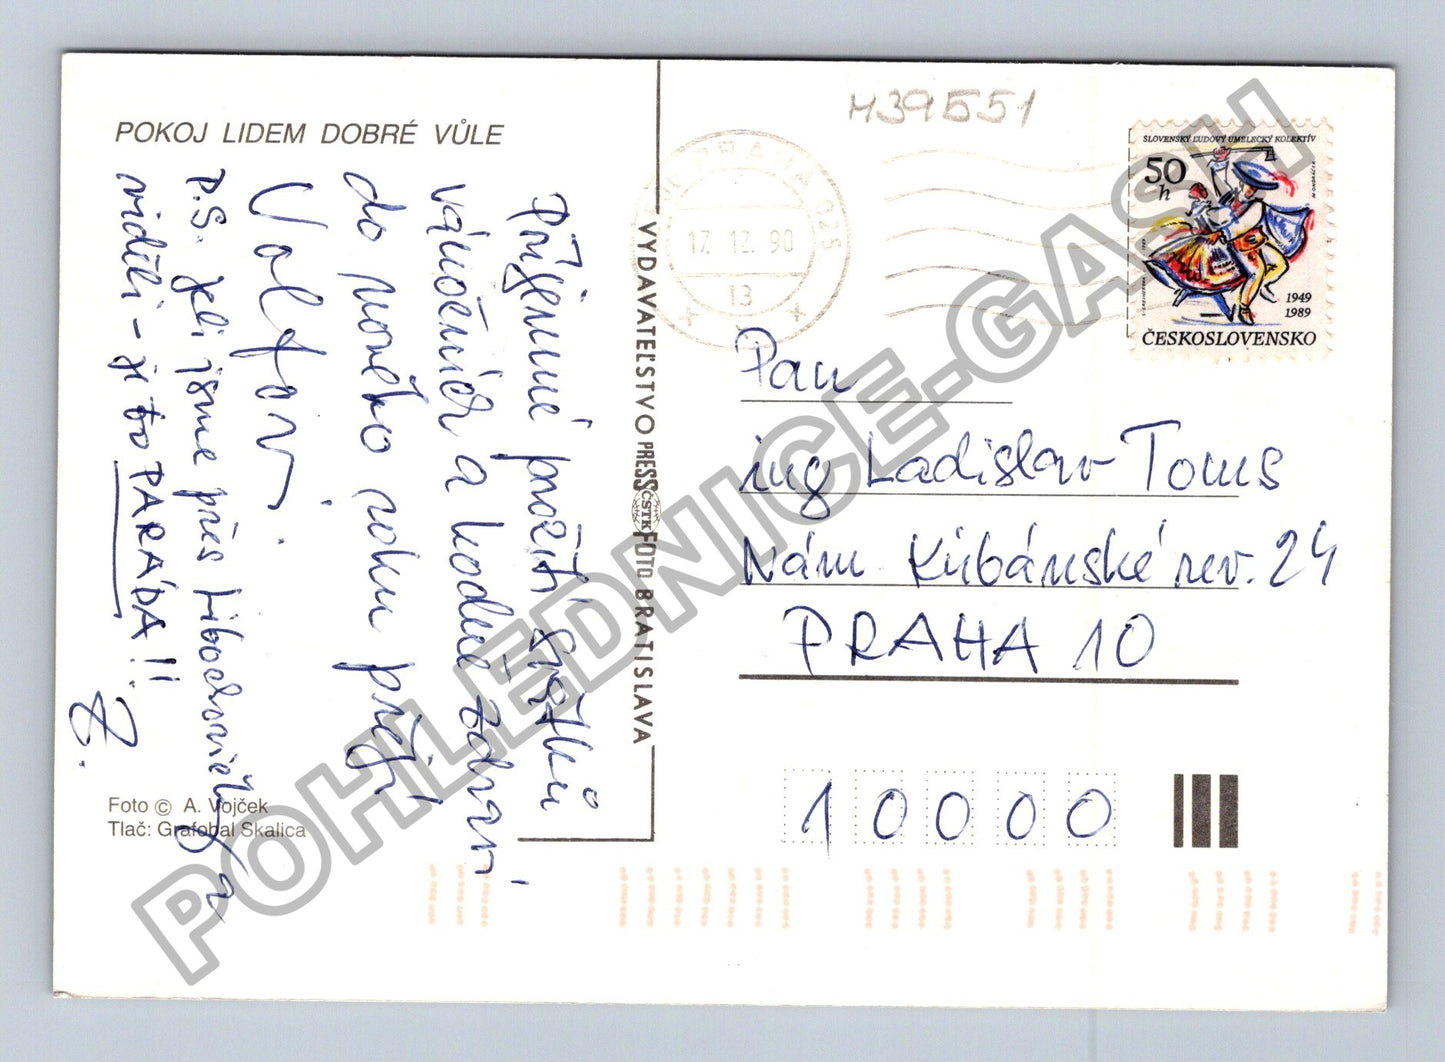 POKOJ LIDEM DOBRÉ VŮLE
Příjemné prožití svátků
vánočních a hodně zdraví
do nového roku přejí
P.S. jeli jsme přes Libochovičky a
viděli - je to PARÁDA!!
Foto © A. Vojček
Tlač: Grafobal Skalica
VYDAVATEĽSTVO PRESSFOTO BRATISLAVA
ČSTK
M39551
PRAHA 025
17. 12. 90
13
SLOVENSKÝ ĽUDOVÝ UMELECKÝ KOLEKTÍV
50
h
1949
1989
ČESKOSLOVENSKO
Pan
ing Ladislav Toms
Nám Kubánské rev. 24
PRAHA 10
10000
POHLEDNICE-GASH